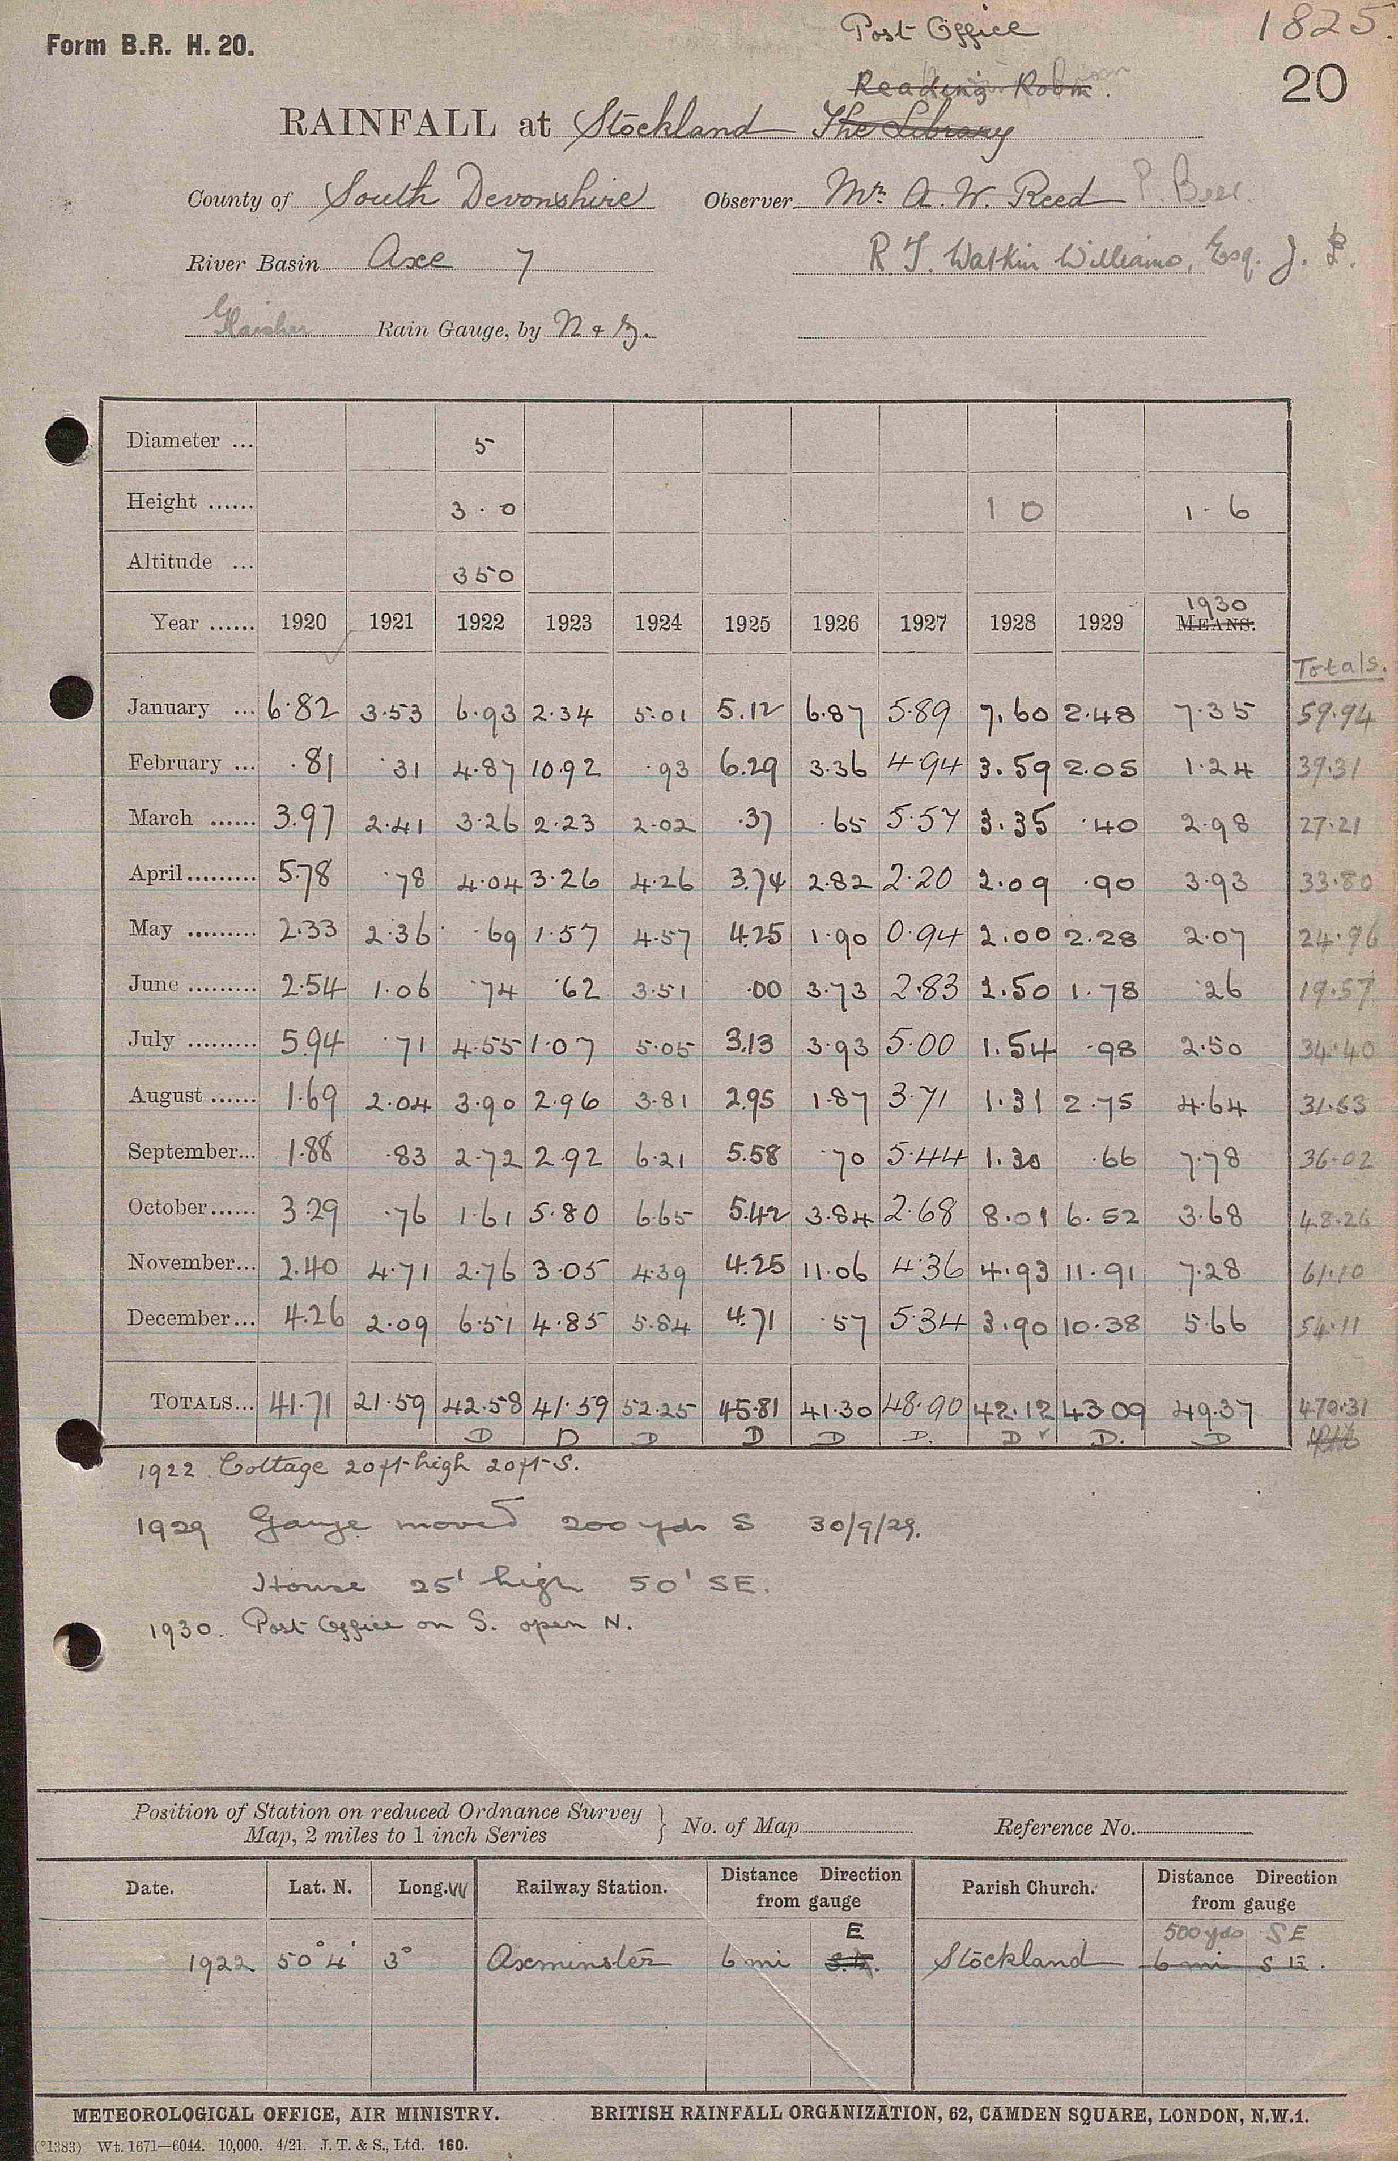 Form B.R. H. 20.
Post Office
1825.
Reading Room.
20
RAINFALL at Stockland The Library
County of South Devonshire Observer Mr. A. W. Reed P. Beer.
River Basin Axe 7 R T. Watkin Williams, Esq. J. P.
Glaisher Rain Gauge, by N & Z.
Diameter ... 5
Height ...... 3 . 0 1 0 1 - 6
Altitude ... 350
1930
Year ...... 1920 1921 1922 1923 1924 1925 1926 1927 1928 1929 MEANS.
Totals.
January ... 6.82 3.53 6.93 2.34 5.01 5.12 6.87 5.89 7.60 2.48 7.35 59.94
February ... .81 .31 4.87 10.92 .93 6.29 3.36 4.94 3.59 2.05 1.24 39.31
March ...... 3.97 2.41 3.26 2.23 2.02 .37 .65 5.57 3.35 .40 2.98 27.21
April ......... 5.78 .78 4.04 3.26 4.26 3.74 2.82 2.20 2.09 .90 3.93 33.80
May ......... 2.33 2.36 .69 1.57 4.57 4.25 1.90 0.94 2.00 2.28 2.07 24.96
June ......... 2.54 1.06 .74 .62 3.51 .00 3.73 2.83 2.50 1.78 .26 19.57
July ......... 5.94 .71 4.55 1.07 5.05 3.13 3.93 5.00 1.54 .98 2.50 34.40
August ...... 1.69 2.04 3.90 2.96 3.81 2.95 1.87 3.71 1.31 2.75 4.64 31.63
September... 1.88 .83 2.72 2.92 6.21 5.58 .70 5.44 1.30 .66 7.78 36.02
October...... 3.29 .76 1.61 5.80 6.65 5.42 3.84 2.68 8.01 6.52 3.68 48.26
November... 2.40 4.71 2.76 3.05 4.39 4.25 11.06 4.36 4.93 11.91 7.28 61.10
December... 4.26 2.09 6.51 4.85 5.84 4.71 .57 5.34 3.90 10.38 5.66 54.11
TOTALS... 41.71 21.59 42.58 41.59 52.25 45.81 41.30 48.90 42.12 43.09 49.37 470.31
D D D D D D. D D. D
1922 Cottage 20ft high 20ft S.
1929 Gauge moved 200 yds S 30/9/29.
House 25' high 50' SE.
1930. Post Office on S. open N.
Position of Station on reduced Ordnance Survey
Map, 2 miles to 1 inch Series
No. of Map Reference No.
Date. Lat. N. Long. W Railway Station. Distance Direction from gauge Parish Church. Distance Direction from gauge
E 500 yds SE
1922 50° 4' 3° Axminster 6 mi S.E. Stockland 6 mi S E.
METEOROLOGICAL OFFICE, AIR MINISTRY. BRITISH RAINFALL ORGANIZATION, 62, CAMDEN SQUARE, LONDON, N.W.1.
(*1383) Wt. 1671—6044. 10,000. 4/21. J. T. & S., Ltd. 160.